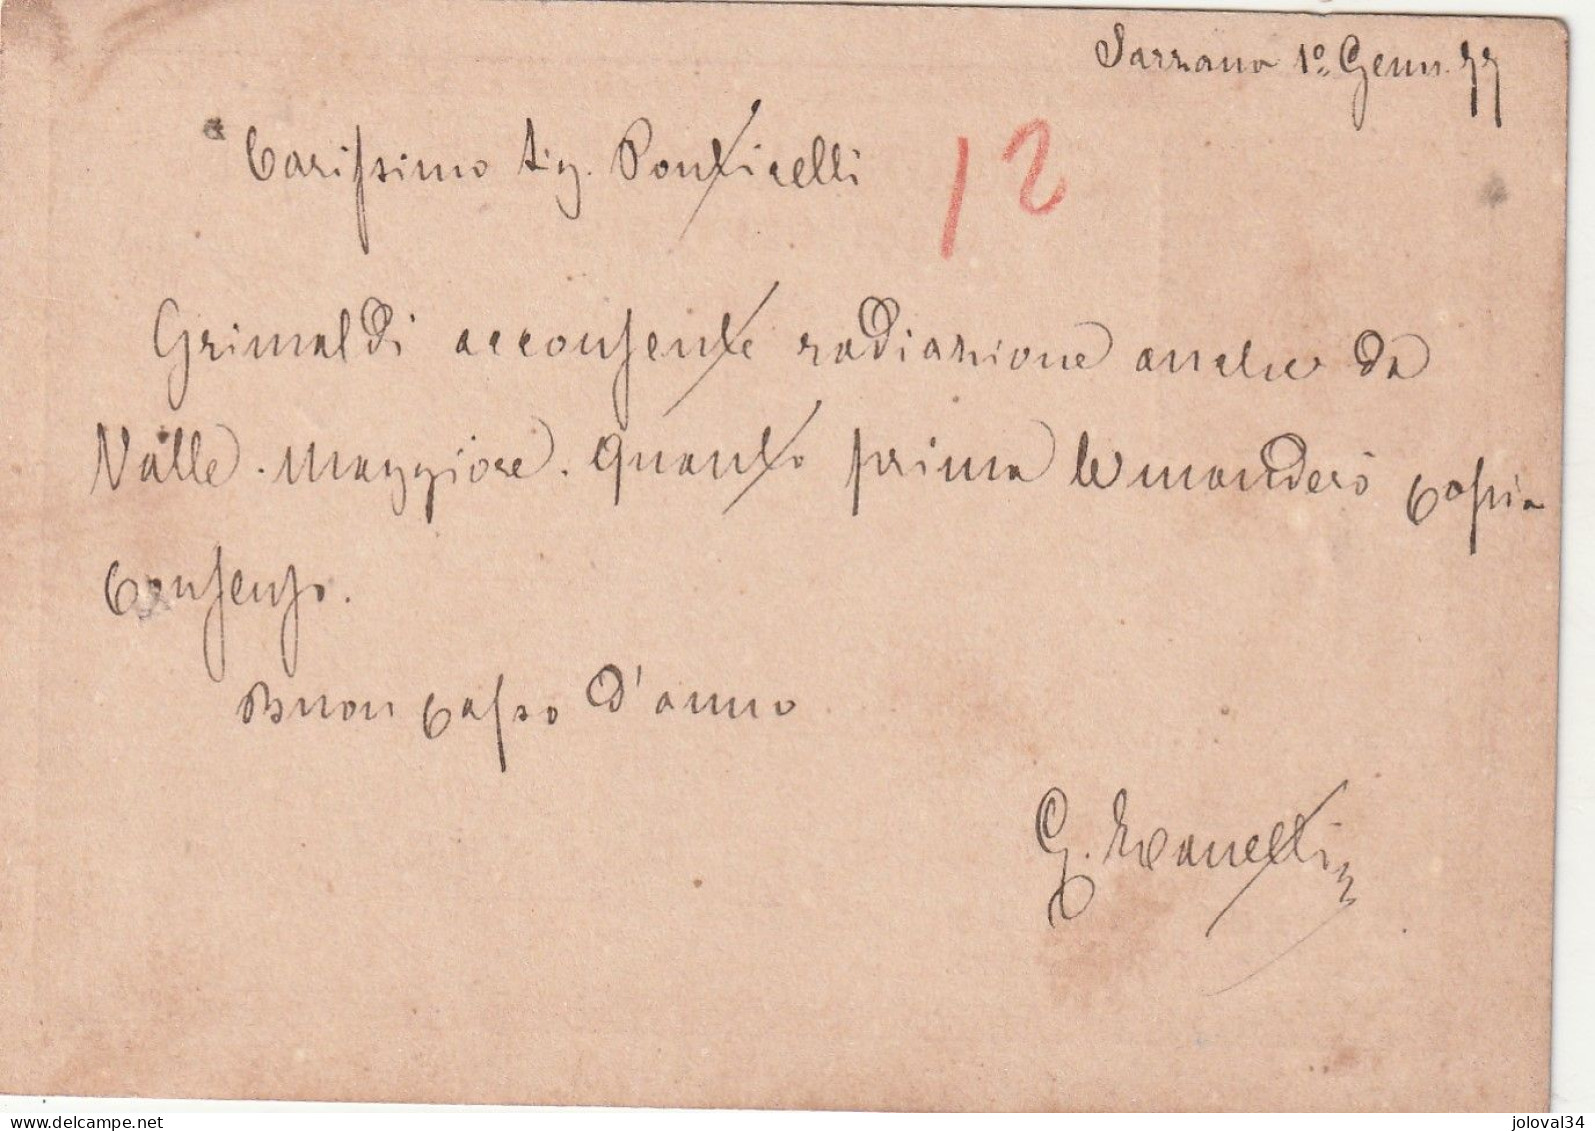 Sarzana 1º Genn. 77
Carissimo Sig. Ponticelli
12
Grimaldi acconsente radiazione anche da
Valle Maggiore. Quanto prima le manderò copia
consenso.
Buon capo d'anno
G.
joloval34